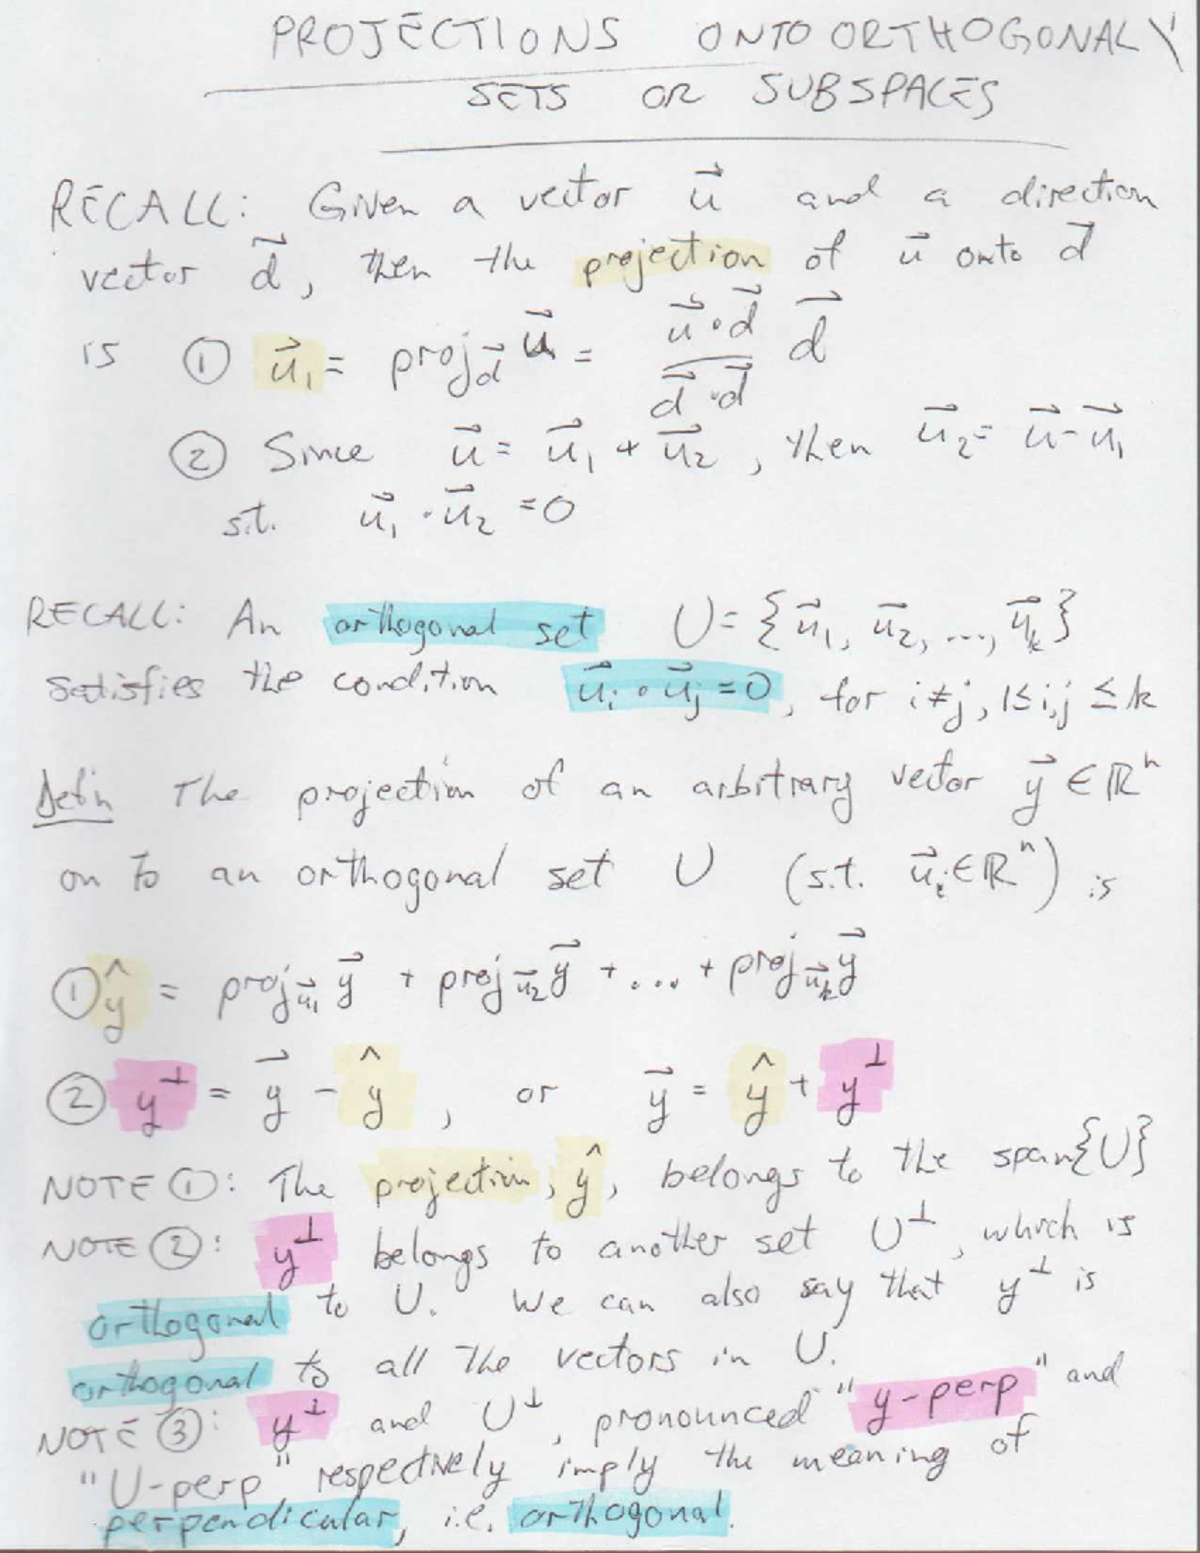 PROJECTIONS ONTO ORTHOGONAL
SETS OR SUBSPACES
RECALL: Given a vector u⃗ and a direction
vector d⃗, then the projection of u⃗ onto d⃗
is ① u⃗₁ = proj_d⃗ u⃗ = (u⃗·d⃗)/(d⃗·d⃗) d⃗
② Since u⃗ = u⃗₁ + u⃗₂, then u⃗₂ = u⃗ - u⃗₁
s.t. u⃗₁ · u⃗₂ = 0
RECALL: An orthogonal set U = {u⃗₁, u⃗₂, ..., u⃗ₖ}
satisfies the condition u⃗ᵢ · u⃗ⱼ = 0, for i≠j, 1≤i,j≤k
Defn The projection of an arbitrary vector y⃗ ∈ ℝⁿ
on to an orthogonal set U (s.t. u⃗ᵢ ∈ ℝⁿ) is
① ŷ = proj_u⃗₁ y⃗ + proj_u⃗₂ y⃗ + ... + proj_u⃗ₖ y⃗
② y^⊥ = y⃗ - ŷ, or y⃗ = ŷ + y^⊥
NOTE ①: The projection, ŷ, belongs to the span{U}
NOTE ②: y^⊥ belongs to another set U^⊥, which is
orthogonal to U. We can also say that y^⊥ is
orthogonal to all the vectors in U.
NOTE ③: y^⊥ and U^⊥, pronounced "y-perp" and
"U-perp" respectively imply the meaning of
perpendicular, i.e. orthogonal.